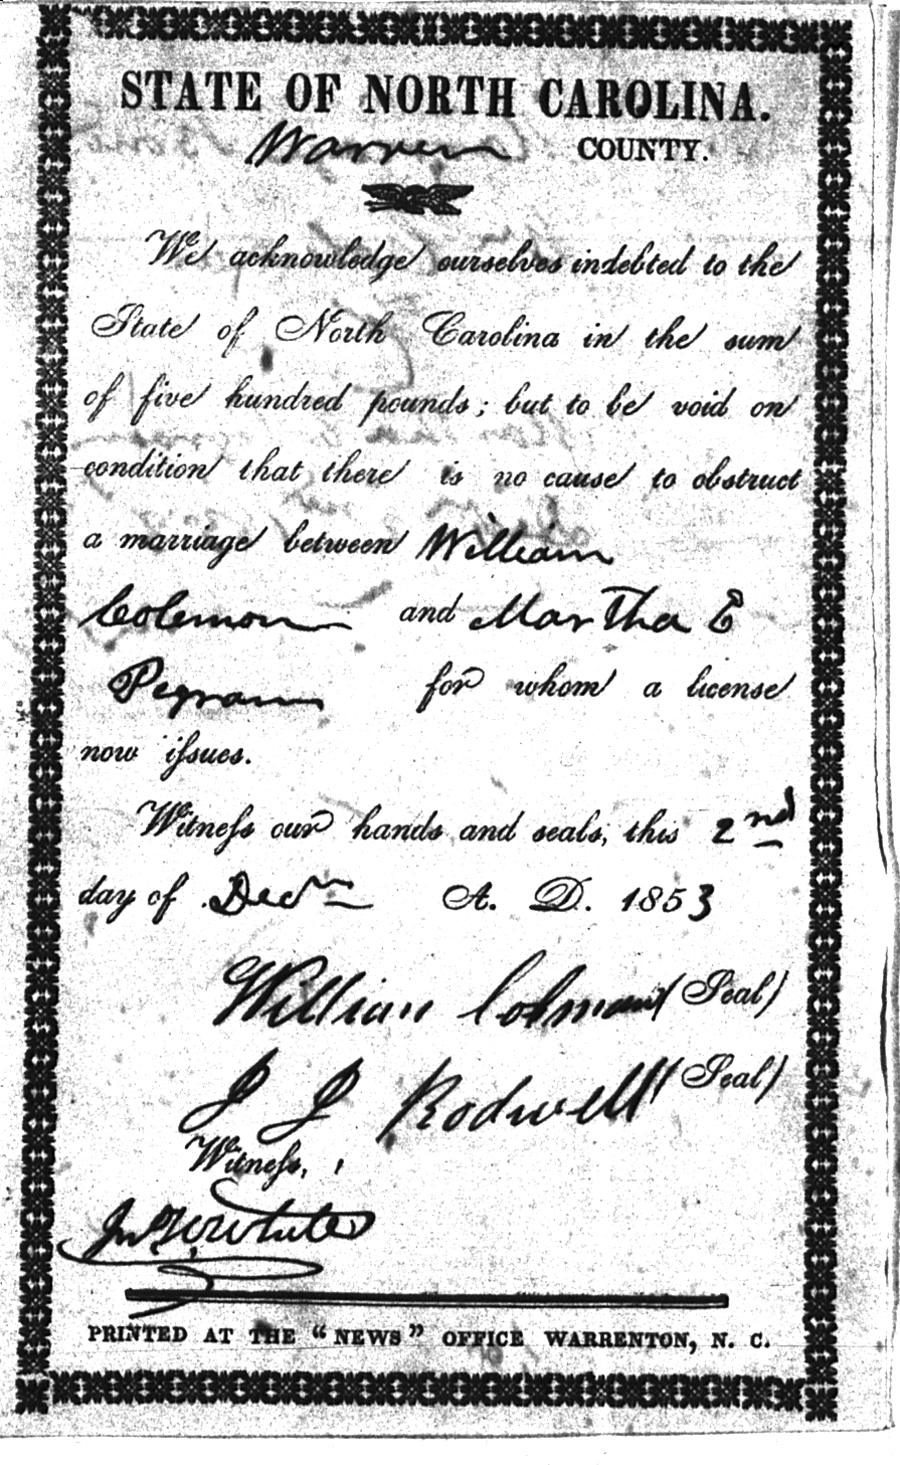 STATE OF NORTH CAROLINA.
Warren COUNTY.
We acknowledge ourselves indebted to the
State of North Carolina in the sum
of five hundred pounds; but to be void on
condition that there is no cause to obstruct
a marriage between William
Colemon and Martha E
Pegram for whom a license
now iſsues.
Witneſs our hands and seals, this 2nd
day of Decm A. D. 1853
William Colman (Seal)
J J Rodwell (Seal)
Witneſs,
White
PRINTED AT THE "NEWS" OFFICE WARRENTON, N. C.